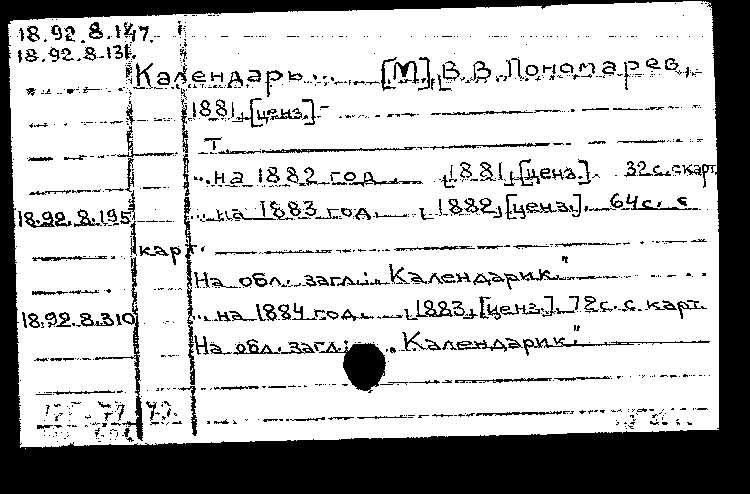 18.92.8.147.
18.92.8.131.
Календарь... [М], В.В. Пономарев,
1881, [ценз.]-
т.
...на 1882 год. , 1881, [ценз.]. 32с. с карт.
18.92.8.195 ...на 1883 год. , 1882, [ценз.]. 64с. с
карт.
На обл. загл.: „Календарик."
18.92.8.310 ...на 1884 год. , 1883, [ценз.]. 72с. с карт.
На обл. загл.: „Календарик."